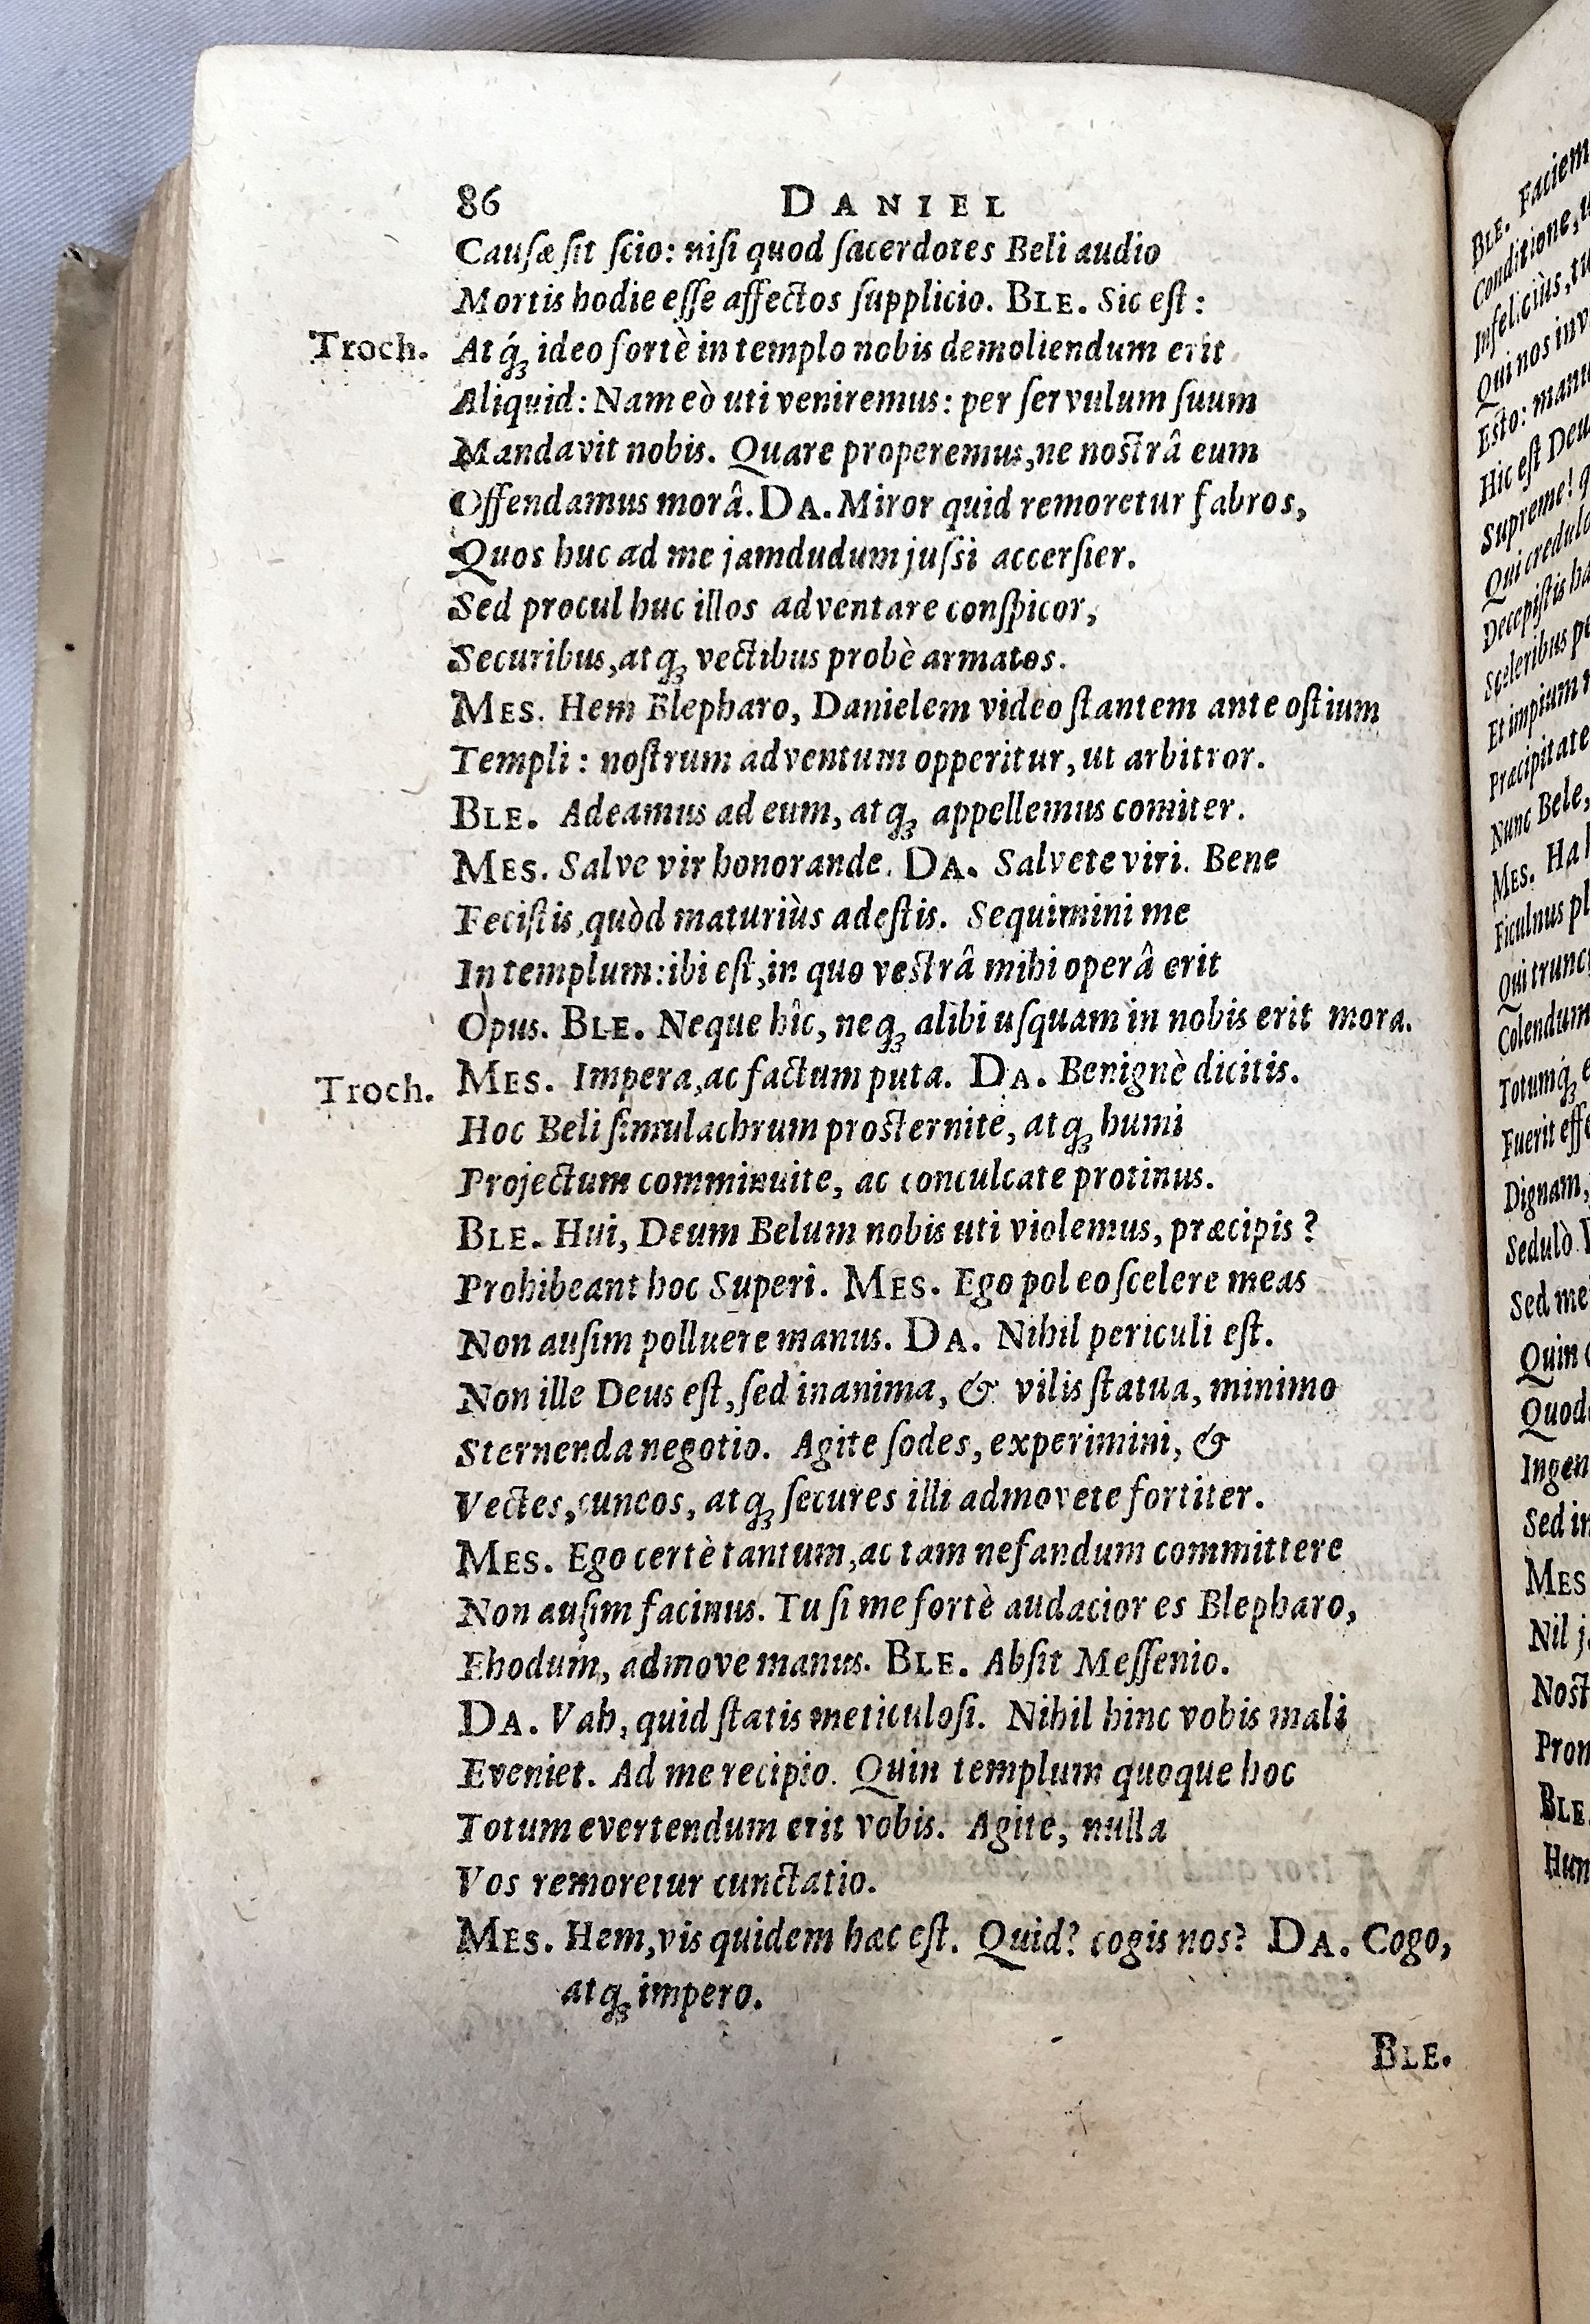 86 DANIEL
Causæ sit scio: nisi quod sacerdotes Beli audio
Mortis hodie esse affectos supplicio. BLE. Sic est:
Troch. Atq́ꝫ ideo fortè in templo nobis demoliendum erit
Aliquid: Nam eò uti veniremus: per servulum suum
Mandavit nobis. Quare properemus, ne nostrâ eum
Offendamus morâ. DA. Miror quid remoretur fabros,
Quos huc ad me jamdudum jussi accersier.
Sed procul huc illos adventare conspicor,
Securibus, atqꝫ vectibus probè armatos.
MES. Hem Blepharo, Danielem video stantem ante ostium
Templi: nostrum adventum opperitur, ut arbitror.
BLE. Adeamus ad eum, atqꝫ appellemus comiter.
MES. Salve vir honorande. DA. Salvete viri. Bene
Fecistis, quòd maturiùs adestis. Sequimini me
In templum: ibi est, in quo vestrâ mihi operâ erit
Opus. BLE. Neque hîc, neqꝫ alibi usquam in nobis erit mora.
Troch. MES. Impera, ac factum puta. DA. Benignè dicitis.
Hoc Beli simulachrum prosternite, atqꝫ humi
Projectum comminuite, ac conculcate protinus.
BLE. Hui, Deum Belum nobis uti violemus, præcipis?
Prohibeant hoc Superi. MES. Ego pol eo scelere meas
Non ausim polluere manus. DA. Nihil periculi est.
Non ille Deus est, sed inanima, & vilis statua, minimo
Sternenda negotio. Agite sodes, experimini, &
Vectes, cuneos, atqꝫ secures illi admovete fortiter.
MES. Ego certè tantum, ac tam nefandum committere
Non ausim facinus. Tu si me fortè audacior es Blepharo,
Ehodum, admove manus. BLE. Absit Messenio.
DA. Vah, quid statis meticulosi. Nihil hinc vobis mali
Eveniet. Ad me recipio. Quin templum quoque hoc
Totum evertendum erit vobis. Agite, nulla
Vos remoretur cunctatio.
MES. Hem, vis quidem hac est. Quid? cogis nos? DA. Cogo,
atqꝫ impero.
BLE.
BLE. Faciem
Conditione,
Infeliciùs, tu
Qui nos inv
Esto: manu
Hic est Deu
Supreme!
Qui credul
Decepistis ha
Sceleribus pe
Et impium
Præcipitate
Nunc Bele,
MES. Ha h
Ficulnus pl
Qui trunc
Colendum
Totumq́ꝫ e
Fuerit effe
Dignam,
Sedulò.
Sed me
Quin
Quod
Ingen
Sed in
MES
Nil j
Nost
Pron
BLE.
Hun